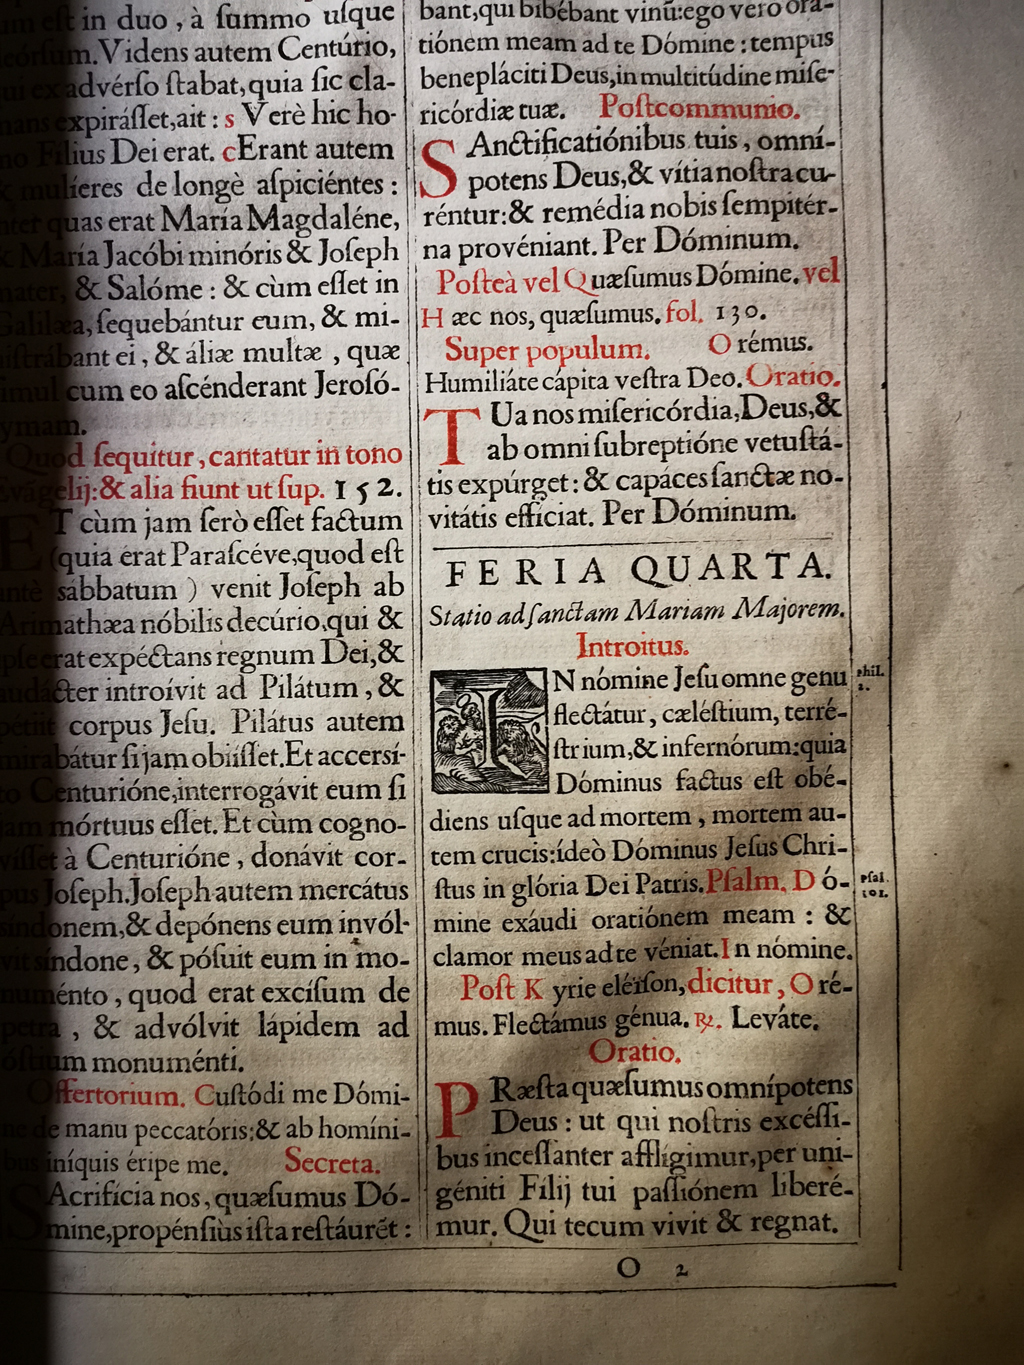 est in duo, à ſummo uſque
deórſum. Videns autem Centúrio,
qui ex advérſo ſtabat, quia ſic cla-
mans expiráſſet, ait: s Verè hic ho-
mo Filius Dei erat. c Erant autem
& mulíeres de longè aſpiciéntes:
inter quas erat María Magdaléne,
& María Jacóbi minóris & Joſeph
mater, & Salóme: & cùm eſſet in
Galilæa, ſequebántur eum, & mi-
niſtrábant ei, & áliæ multæ, quæ
ſimul cum eo aſcénderant Jeroſó-
lymam.
Quod ſequitur, cantatur in tono
Evãgelij: & alia fiunt ut ſup. 152.
ET cùm jam ſerò eſſet factum
(quia erat Paraſcéve, quod eſt
antè sábbatum) venit Joſeph ab
Arimathæa nóbilis decúrio, qui &
ipſe erat expéctans regnum Dei, &
audácter introívit ad Pilátum, &
pétiit corpus Jeſu. Pilátus autem
mirabátur ſi jam obiíſſet. Et accersí-
to Centurióne, interrogávit eum ſi
jam mórtuus eſſet. Et cùm cogno-
víſſet à Centurióne, donávit cor-
pus Joſeph. Joſeph autem mercátus
síndonem, & depónens eum invól-
vit síndone, & póſuit eum in mo-
numénto, quod erat excíſum de
petra, & advólvit lápidem ad
óſtium monuménti.
Offertorium. Cuſtódi me Dómi-
ne de manu peccatóris: & ab homíni-
bus iníquis éripe me. Secreta.
SAcrifícia nos, quæſumus Dó-
mine, propénſiùs iſta reſtáurẽt:
bant, qui bibébant vinũ: ego vero ora-
tiónem meam ad te Dómine: tempus
benepláciti Deus, in multitúdine miſe-
ricórdiæ tuæ. Poſtcommunio.
SAnctificatiónibus tuis, omní-
potens Deus, & vítia noſtra cu-
réntur: & remédia nobis ſempitér-
na provéniant. Per Dóminum.
Poſteà vel Quæſumus Dómine. vel
Hæc nos, quæſumus. fol. 130.
Super populum. Orémus.
Humiliáte cápita veſtra Deo. Oratio.
TUa nos miſericórdia, Deus, &
ab omni ſubreptióne vetuſtá-
tis expúrget: & capáces ſanctæ no-
vitátis efficiat. Per Dóminum.
FERIA QUARTA.
Statio ad ſanctam Mariam Majorem.
Introitus.
IN nómine Jeſu omne genu
flectátur, cæléſtium, terré-
ſtrium, & infernórum: quia
Dóminus factus eſt obé-
diens uſque ad mortem, mortem au-
tem crucis: ídeò Dóminus Jeſus Chri-
ſtus in glória Dei Patris. Pſalm. Dó-
mine exáudi oratiónem meam: &
clamor meus ad te véniat. In nómine.
Poſt Kyrie eléiſon, dicitur, Oré-
mus. Flectámus génua. ℟. Leváte.
Oratio.
PRæſta quæſumus omnípotens
Deus: ut qui noſtris excéſſi-
bus inceſſánter afflígimur, per uni-
géniti Fílij tui paſſiónem liberé-
mur. Qui tecum vivit & regnat.
phil.
2.
Pſal.
101.
O 2